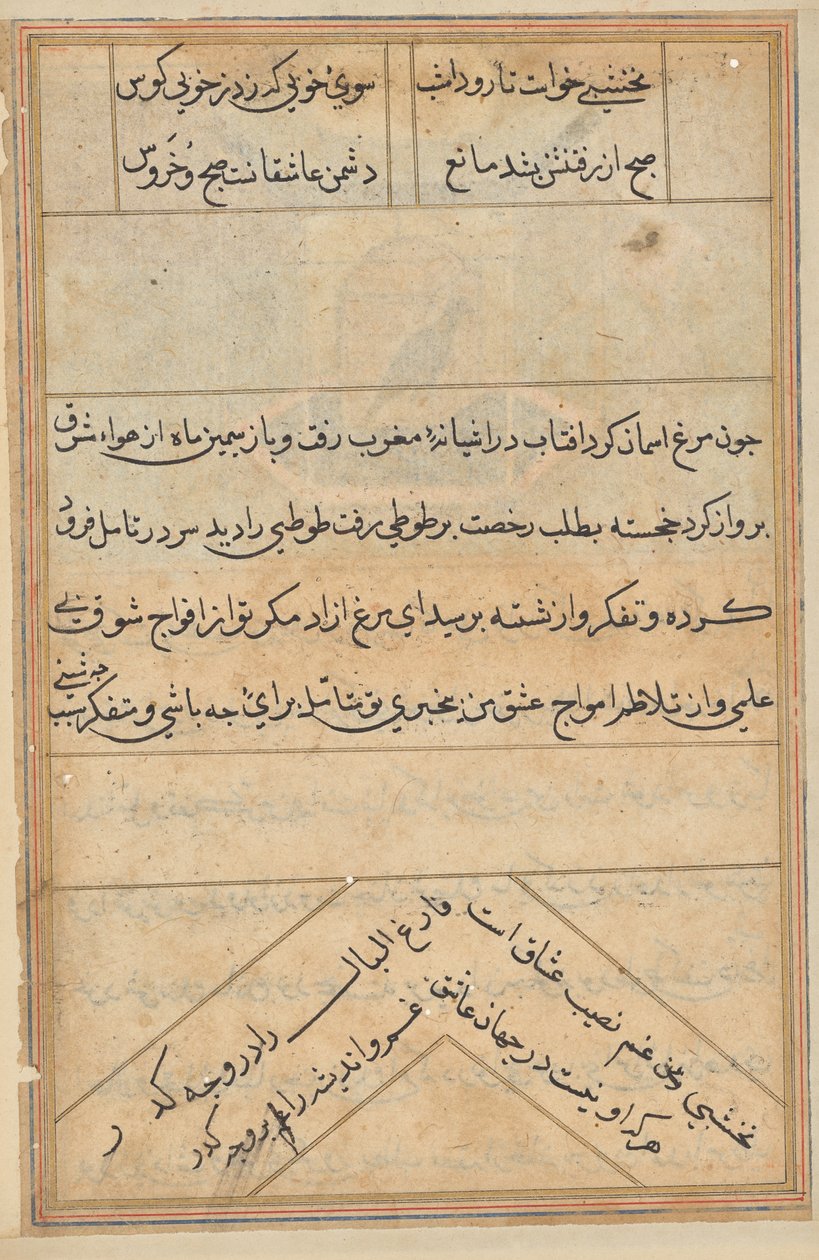 نخشبی خواست تا رود امشب
سوی خوبی که زد ز خوبی کوس
صبح از رفتنش بشد مانع
دشمن عاشقانست صبح و خروس
جون مرغ اسمان کرد افتاب در اشیانهٔ مغرب رفت و باز سیمین ماه از هواء شرق
برواز کرد خجسته بطلب رخصت بر طوطی رفت طوطی را دید سر در تامل فرود
کرده و تفکر واز نشسته برسید ای مرغ ازاد مکر تو از افواج شوق بی
علمی و از تلاطم امواج عشق من بیخبری تو متامّل برای جه باشی و متفکر بسبب جه نشینی
نخشبی غم نصیب عشاق است
فارغ البال را درو جه کدر
هرکه او نیست در جهان عاشق
غم و اندیشه را برو جه کدر